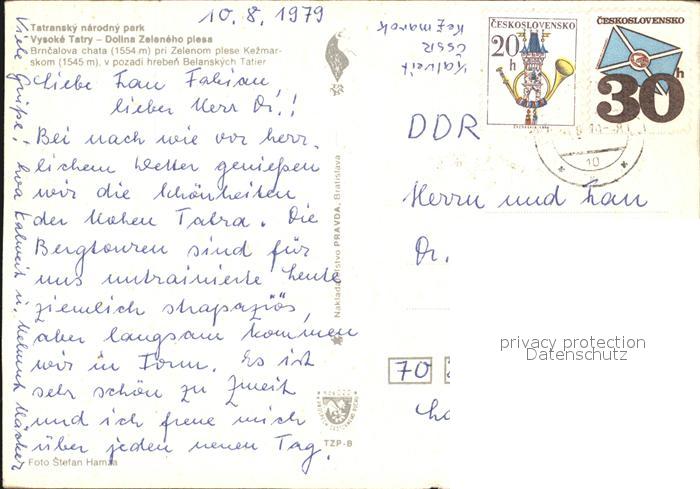 10.8.1979
Tatranský národný park
Vysoké Tatry – Dolina Zeleného plesa
Brnčalova chata (1554 m) pri Zelenom plese Kežmar-
skom (1545 m), v pozadí hrebeň Belanských Tatier
Liebe Frau Fabian,
lieber Herr Dr.!
Bei nach wie vor herr-
lichem Wetter genießen
wir die Schönheiten
der Hohen Tatra. Die
Bergtouren sind für
uns untrainierte Leute
ziemlich strapaziös,
aber langsam kommen
wir in Form. Es ist
sehr schön zu zweit
und ich freue mich
über jeden neuen Tag.
Viele Grüße!
u. Helmut
Foto Štefan Hamza
Nakladateľstvo PRAVDA, Bratislava
TZP-8
Kalweit
ČSSR
Kežmarok
ČESKOSLOVENSKO
20 h
ČESKOSLOVENSKO
30 h
10
DDR
Herrn und Frau
Dr.
70
privacy protection
Datenschutz